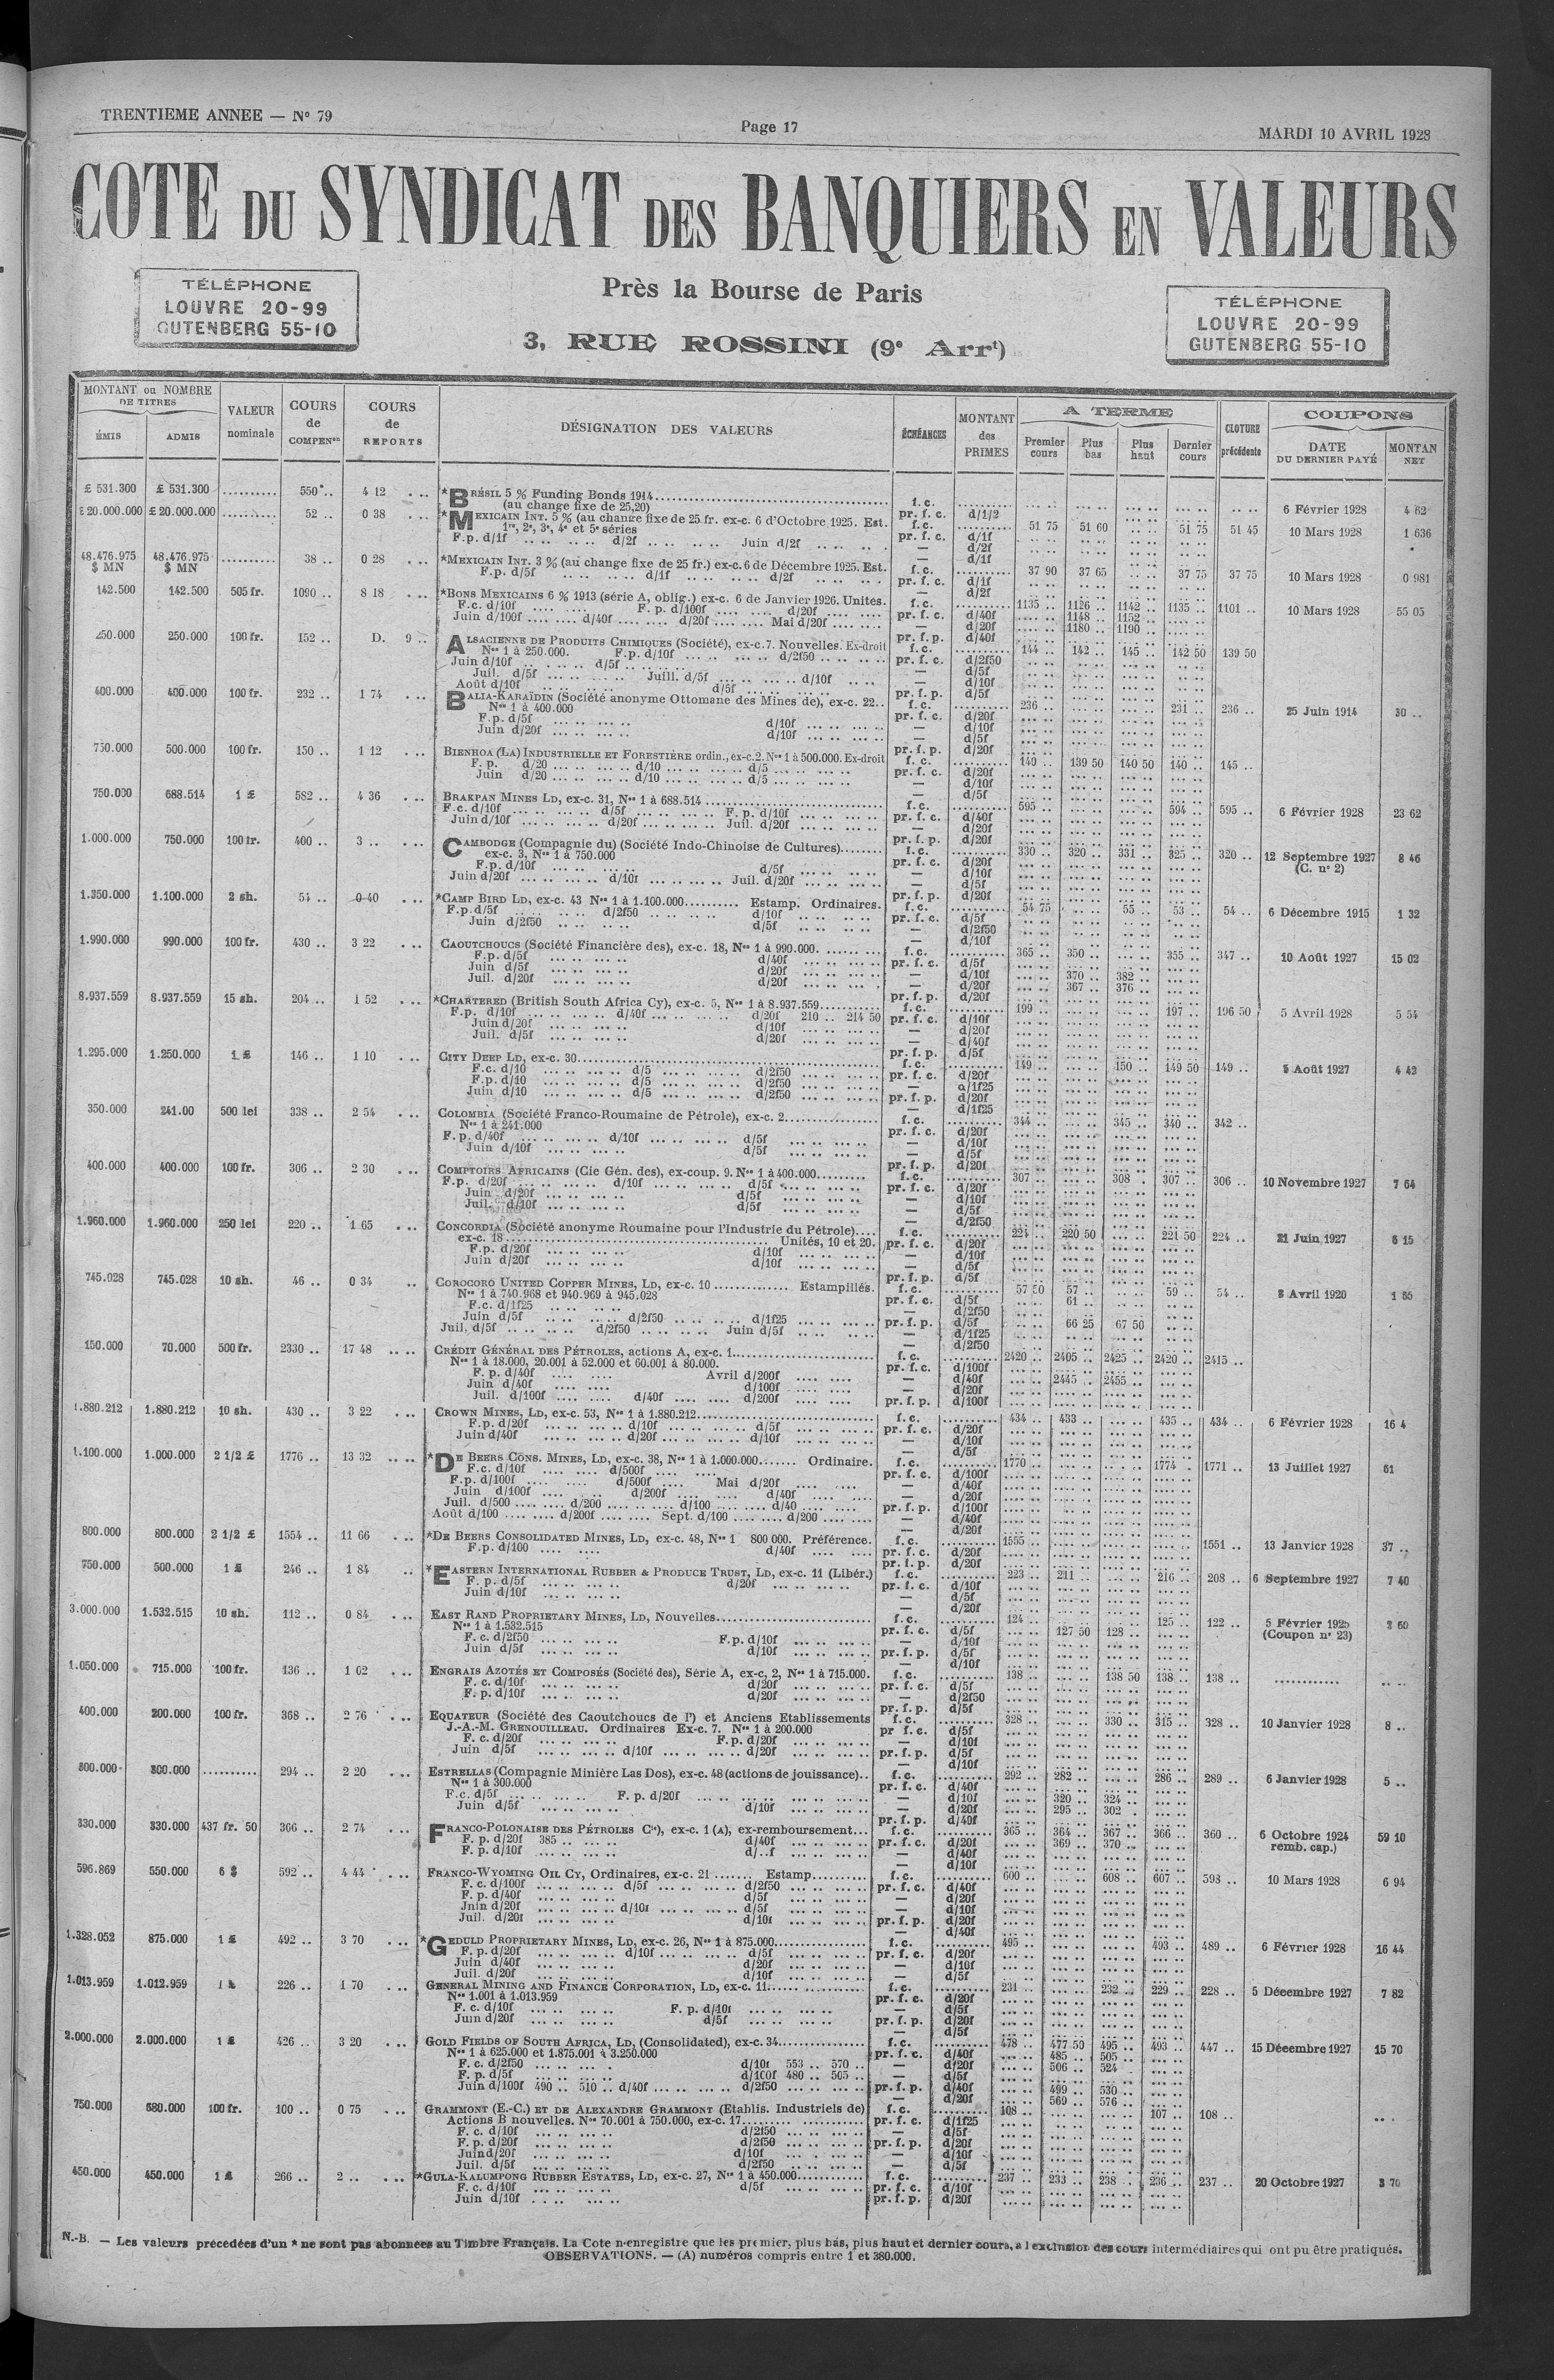 TRENTIEME ANNEE — N° 79
Page 17
MARDI 10 AVRIL 1928
COTE DU SYNDICAT DES BANQUIERS EN VALEURS
TÉLÉPHONE
LOUVRE 20-99
GUTENBERG 55-10
Près la Bourse de Paris
3, RUE ROSSINI (9e Arrt)
TÉLÉPHONE
LOUVRE 20-99
GUTENBERG 55-10
MONTANT ou NOMBRE DE TITRES
ÉMIS ADMIS
VALEUR nominale
COURS de COMPENon
COURS de REPORTS
DÉSIGNATION DES VALEURS
ÉCHÉANCES
MONTANT des PRIMES
A TERME
Premier cours Plus bas Plus haut Dernier cours
CLOTURE précédente
COUPONS
DATE DU DERNIER PAYÉ
MONTAN NET
£ 531.300 £ 531.300 .......... 550 .. 4 12 *BRÉSIL 5 % Funding Bonds 1914 f.c. 6 Février 1928 4 62
(au change fixe de 25,20) pr. f. c. d/1/2
£ 20.000.000 £ 20.000.000 .......... 52 .. 0 38 *MEXICAIN INT. 5 % (au change fixe de 25 fr. ex-c. 6 d'Octobre 1925. Est. f.c. 51 75 51 60 51 75 51 45 10 Mars 1928 1 636
1re, 2e, 3e, 4e et 5e séries pr. f. c. d/1f
F.p. d/1f d/2f Juin d/2f — d/2f
48.476.975 $ MN 48.476.975 $ MN .......... 38 .. 0 28 *MEXICAIN INT. 3 % (au change fixe de 25 fr.) ex-c. 6 de Décembre 1925. Est. f.c. 37 90 37 65 37 75 37 75 10 Mars 1928 0 981
F.p. d/5f d/1f d/2f pr. f. c. d/1f
142.500 142.500 505 fr. 1090 .. 8 18 *BONS MEXICAINS 6 % 1913 (série A, oblig.) ex-c. 6 de Janvier 1926. Unités. f.c. 1135 .. 1126 .. 1142 .. 1135 .. 1101 .. 10 Mars 1928 55 05
F.c. d/10f F. p. d/100f d/20f pr. f. c. d/40f 1148 .. 1152 ..
Juin d/100f d/40f d/20f Mai d/20f — d/20f 1180 .. 1190 ..
250.000 250.000 100 fr. 152 .. D. 9 .. ALSACIENNE DE PRODUITS CHIMIQUES (Société), ex-c.7. Nouvelles. Ex-droit f.c. 144 .. 142 .. 145 .. 142 50 139 50
Nos 1 à 250.000. F.p. d/10f d/2f50 pr. f. c. d/2f50
Juin d/10f d/5f — d/5f
Juil. d/5f Juill. d/5f d/10f — d/10f
Août d/10f d/5f pr. f. p. d/5f
400.000 400.000 100 fr. 232 .. 1 74 BALIA-KARAÏDIN (Société anonyme Ottomane des Mines de), ex-c. 22.. f.c. 236 .. 231 .. 236 .. 25 Juin 1914 30 ..
Nos 1 à 400.000 pr. f. c. d/20f
F.p. d/5f d/10f — d/10f
Juin d/20f d/10f — d/5f
750.000 500.000 100 fr. 150 .. 1 12 BIENHOA (LA) INDUSTRIELLE ET FORESTIÈRE ordin., ex-c.2. Nos 1 à 500.000. Ex-droit f.c. 140 .. 139 50 140 50 140 .. 145 ..
F. p. d/20 d/10 d/5 pr. f. c. d/20f
Juin d/20 d/10 d/5 — d/10f
750.000 688.514 1 £ 582 .. 4 36 BRAKPAN MINES LD, ex-c. 31, Nos 1 à 688.514 f.c. 595 .. 594 .. 595 .. 6 Février 1928 23 62
F.c. d/10f d/5f F. p. d/10f pr. f. c. d/40f
Juin d/10f d/20f Juil. d/20f — d/20f
1.000.000 750.000 100 fr. 400 .. 3 .. CAMBODGE (Compagnie du) (Société Indo-Chinoise de Cultures) f.c. 330 .. 320 .. 331 .. 325 .. 320 .. 12 Septembre 1927 (C. n° 2) 8 46
ex-c. 3, Nos 1 à 750.000 pr. f. c. d/20f
F.p. d/10f d/5f — d/10f
Juin d/20f d/10f Juil. d/20f — d/5f
1.350.000 1.100.000 2 sh. 54 .. 0 40 *CAMP BIRD LD, ex-c. 43 Nos 1 à 1.100.000 Estamp. Ordinaires. f.c. 54 75 55 .. 53 .. 54 .. 6 Décembre 1915 1 32
F.p. d/5f d/2f50 d/10f pr. f. c. d/5f
Juin d/2f50 d/5f — d/2f50
1.990.000 990.000 100 fr. 430 .. 3 22 CAOUTCHOUCS (Société Financière des), ex-c. 18, Nos 1 à 990.000. f.c. 365 .. 350 .. 355 .. 347 .. 10 Août 1927 15 02
F.p. d/5f d/40f pr. f. c. d/5f
Juin d/5f d/20f — d/10f 370 .. 382 ..
Juil. d/20f d/20f — d/20f 367 .. 376 ..
8.937.559 8.937.559 15 sh. 204 .. 1 52 *CHARTERED (British South Africa Cy), ex-c. 5, Nos 1 à 8.937.559 f.c. 199 .. 197 .. 196 50 5 Avril 1928 5 54
F.p. d/10f d/40f d/20f 210 .. 214 50 pr. f. c. d/10f
Juin d/20f d/10f — d/20f
Juil. d/5f d/20f — d/40f
1.295.000 1.250.000 1 £ 146 .. 1 10 CITY DEEP LD, ex-c. 30 f.c. 149 .. 150 .. 149 50 149 .. 5 Août 1927 4 42
F.c. d/10 d/5 d/2f50 pr. f. c. d/20f
F.p. d/10 d/5 d/2f50 — d/1f25
Juin d/10 d/5 d/2f50 pr. f. p. d/20f
350.000 241.00 500 lei 338 .. 2 54 COLOMBIA (Société Franco-Roumaine de Pétrole), ex-c. 2 f.c. 344 .. 345 .. 340 .. 342 ..
Nos 1 à 241.000 pr. f. c. d/20f
F.p. d/40f d/10f d/5f — d/10f
Juin d/10f d/5f — d/5f
400.000 400.000 100 fr. 306 .. 2 30 COMPTOIRS AFRICAINS (Cie Gén. des), ex-coup. 9. Nos 1 à 400.000 f.c. 307 .. 308 . 307 .. 306 .. 10 Novembre 1927 7 64
F.p. d/20f d/10f d/5f pr. f. c. d/20f
Juin d/20f d/5f — d/10f
Juil. d/10f d/5f — d/5f
1.960.000 1.960.000 250 lei 220 .. 1 65 CONCORDIA (Société anonyme Roumaine pour l'Industrie du Pétrole) f.c. 224 .. 220 50 221 50 224 .. 21 Juin 1927 6 15
ex-c. 18 Unités, 10 et 20. pr. f. c. d/20f
F.p. d/20f d/10f — d/10f
Juin d/20f d/10f — d/5f
745.028 745.028 10 sh. 46 .. 0 34 COROCORO UNITED COPPER MINES, LD, ex-c. 10 Estampillés. f.c. 57 50 57 .. 59 .. 54 .. 8 Avril 1920
Nos 1 à 740.968 et 940.969 à 945.028 pr. f. c. d/5f 61 ..
F.c. d/1f25 — d/2f50
Juin d/5f d/2f50 d/1f25 pr. f. p. d/5f 66 25 67 50
Juil. d/5f d/2f50 Juin d/5f — d/1f25
150.000 70.000 500 fr. 2330 .. 17 48 CRÉDIT GÉNÉRAL DES PÉTROLES, actions A, ex-c. 1 f.c. 2420 .. 2405 .. 2425 .. 2420 .. 2415 ..
Nos 1 à 18.000, 20.001 à 52.000 et 60.001 à 80.000. pr. f. c. d/100f
F. p. d/40f Avril d/200f — d/40f 2445 .. 2455 ..
Juin d/40f d/100f — d/20f
Juil. d/100f d/40f d/200f pr. f. p. d/100f
1.880.212 1.880.212 10 sh. 430 .. 3 22 CROWN MINES, LD, ex-c. 53, Nos 1 à 1.880.212 f.c. 434 .. 433 .. 435 .. 434 .. 6 Février 1928 16 4
F.p. d/20f d/10f d/5f pr. f. c. d/20f
Juin d/40f d/20f d/10f — d/10f
1.100.000 1.000.000 2 1/2 £ 1776 .. 13 32 *DE BEERS CONS. MINES, LD, ex-c. 38, Nos 1 à 1.000.000 Ordinaire. f.c. 1770 .. 1774 .. 1771 .. 13 Juillet 1927 61
F.c. d/10f d/500f pr. f. c. d/100f
F.p. d/100f d/500f Mai d/20f — d/40f
Juin d/100f d/200f d/40f — d/20f
Juil. d/500 d/200 d/100 d/40 pr. f. p. d/100f
Août d/100 d/200f Sept. d/100 d/200 — d/40f
800.000 800.000 2 1/2 £ 1554 .. 11 66 *DE BEERS CONSOLIDATED MINES, LD, ex-c. 48, Nos 1 800.000. Préférence. f.c. 1555 .. 1551 .. 13 Janvier 1928 37 ..
F.p. d/100 d/40f pr. f. c. d/20f
750.000 500.000 1 £ 246 .. 1 84 *EASTERN INTERNATIONAL RUBBER & PRODUCE TRUST, LD, ex-c. 11 (Libér.) f.c. 223 .. 211 .. 216 .. 208 .. 6 Septembre 1927 7 40
F. p. d/5f d/20f pr. f. c. d/10f
Juin d/10f — d/5f
3.000.000 1.532.515 10 sh. 112 .. 0 84 EAST RAND PROPRIETARY MINES, LD, Nouvelles f.c. 124 .. 125 .. 122 .. 5 Février 1925 (Coupon n° 23)
Nos 1 à 1.532.515 pr. f. c. d/5f 127 50 128 ..
F. c. d/2f50 F.p. d/10f — d/10f
Juin d/5f d/10f pr. f. p. d/5f
1.050.000 715.000 100 fr. 136 .. 1 02 ENGRAIS AZOTÉS ET COMPOSÉS (Société des), Série A, ex-c, 2, Nos 1 à 715.000. f.c. 138 .. 138 50 138 .. 138 ..
F. c. d/10f d/20f pr. f. c. d/5f
F. p. d/10f d/20f — d/2f50
400.000 200.000 100 fr. 368 .. 2 76 EQUATEUR (Société des Caoutchoucs de l') et Anciens Etablissements f.c. 328 .. 330 .. 315 .. 328 .. 10 Janvier 1928 8 ..
J.-A.-M. GRENOUILLEAU. Ordinaires Ex-c. 7. Nos 1 à 200.000 pr f. c. d/5f
F. c. d/20f F.p. d/20f — d/10f
Juin d/5f d/10f d/20f pr. f. p. d/5f
300.000 300.000 .......... 294 .. 2 20 ESTRELLAS (Compagnie Minière Las Dos), ex-c. 48 (actions de jouissance) f.c. 292 .. 282 .. 286 .. 289 .. 6 Janvier 1928 5 ..
Nos 1 à 300.000 pr. f. c. d/40f
F.c. d/5f F. p. d/20f — d/10f 320 .. 324 ..
Juin d/5f d/10f — d/20f 295 .. 302 .
330.000 330.000 437 fr. 50 366 .. 2 74 FRANCO-POLONAISE DES PÉTROLES Cie), ex-c. 1 (A), ex-remboursement f.c. 365 .. 364 .. 367 .. 366 .. 360 .. 6 Octobre 1924 remb. cap.) 59 10
F. p. d/20f 385 .. d/40f pr. f. c. d/20f 369 .. 370 ..
F. p. d/10f d/..f — d/40f
596.869 550.000 6 $ 592 .. 4 44 FRANCO-WYOMING OIL CY, Ordinaires, ex-c. 21 Estamp. f.c. 600 .. 608 .. 607 .. 593 .. 10 Mars 1928 6 94
F. c. d/100f d/5f d/2f50 pr. f. c. d/40f
F. p. d/40f d/5f — d/20f
Juin d/20f d/10f d/5f — d/10f
Juil. d/20f d/10f pr. f. p. d/20f
1.328.052 875.000 1 £ 492 .. 3 70 *GEDULD PROPRIETARY MINES, LD, ex-c. 26, Nos 1 à 875.000 f.c. 495 .. 493 .. 489 .. 6 Février 1928 16 44
F. p. d/20f d/10f d/5f pr. f. c. d/20f
Juin d/40f d/20f — d/10f
Juil. d/20f d/10f — d/5f
1.013.959 1.012.959 1 £ 226 .. 1 70 GENERAL MINING AND FINANCE CORPORATION, LD, ex-c. 11 f.c. 231 .. 232 .. 229 .. 228 .. 5 Décembre 1927 7 82
Nos 1.001 à 1.013.959 pr. f. c. d/20f
F. c. d/10f F. p. d/10f — d/5f
Juin d/20f d/5f pr. f. p. d/20f
2.000.000 2.000.000 1 £ 426 .. 3 20 GOLD FIELDS OF SOUTH AFRICA, LD, (Consolidated), ex-c. 34 f.c. 478 .. 477 50 495 .. 493 .. 447 .. 15 Décembre 1927 15 70
Nos 1 à 625.000 et 1.875.001 à 3.250.000 pr. f. c. d/40f 485 .. 505 ..
F. c. d/2f50 d/10f 553 .. 570 .. — d/20f 506 .. 524 ..
F. p. d/5f d/100f 480 .. 505 .. — d/5f
Juin d/100f 490 .. 510 .. d/40f d/2f50 pr. f. p. d/40f 499 .. 530 ..
— d/20f 569 .. 576 ..
750.000 680.000 100 fr. 100 .. 0 75 GRAMMONT (E.-C.) ET DE ALEXANDRE GRAMMONT (Etablis. Industriels de) f.c. 108 .. 107 .. 108 ..
Actions B nouvelles. Nos 70.001 à 750.000, ex-c. 17 pr. f. c. d/1f25
F. c. d/10f d/2f50 — d/5f
F. p. d/20f d/2f50 pr. f. p. d/20f
Juin d/20f d/10f — d/10f
Juil. d/5f d/2f50 — d/5f
450.000 450.000 1 £ 266 .. 2 .. *GULA-KALUMPONG RUBBER ESTATES, LD, ex-c. 27, Nos 1 à 450.000 f.c. 237 .. 233 .. 238 .. 236 .. 237 .. 20 Octobre 1927 3 70
F. c. d/10f d/5f pr. f. c. d/10f
Juin d/10f pr. f. p. d/20f
N.-B. — Les valeurs précédées d'un * ne sont pas abonnées au Timbre Français. La Cote n'enregistre que les premier, plus bas, plus haut et dernier cours, a l exclusion des cours intermédiaires qui ont pu être pratiqués.
OBSERVATIONS. — (A) numéros compris entre 1 et 380.000.